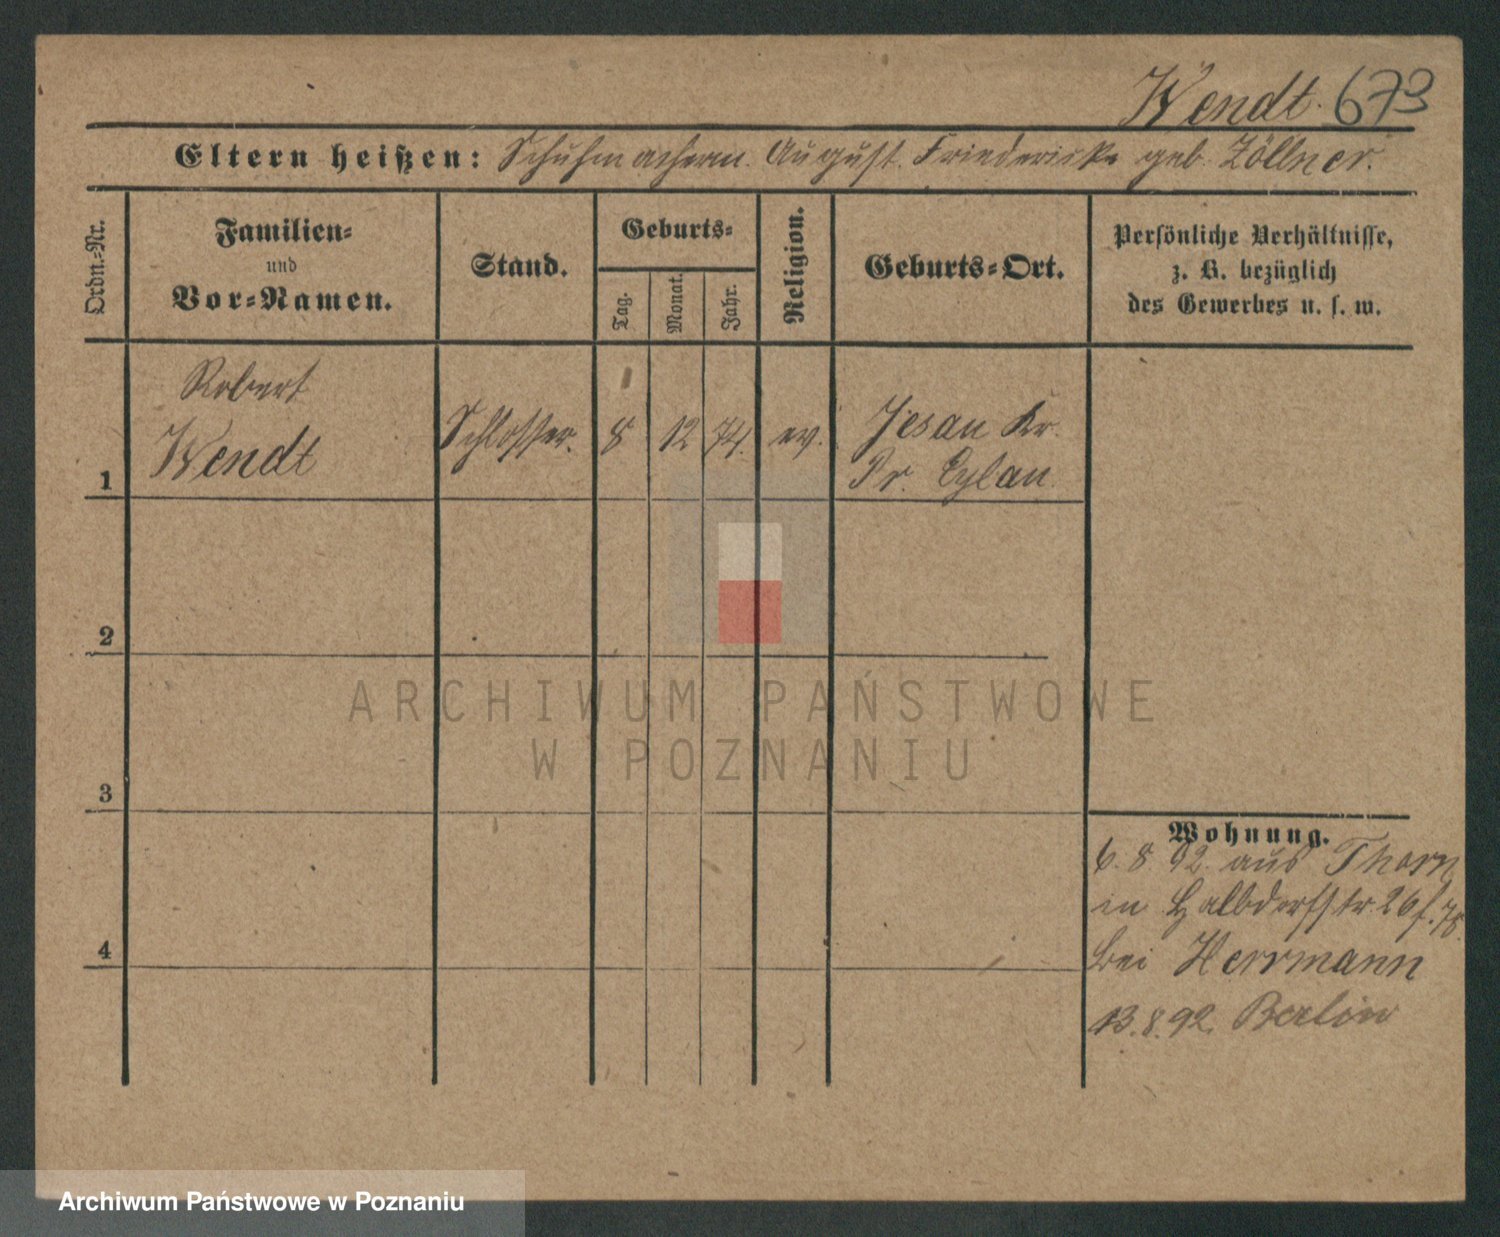 Wendt. 673
Eltern heißen: Schuhmacherm. August. Friedericke geb. Zöllner.
Ordn.-Nr.
Familien-
und
Vor-Namen.
Stand.
Geburts-
Tag.
Monat.
Jahr.
Religion.
Geburts-Ort.
Persönliche Verhältnisse,
z. B. bezüglich
des Gewerbes u. s. w.
Robert
Wendt
Schlosser.
8
12
74.
ev.
Jesau Kr.
Pr. Eylau.
1
2
3
4
Wohnung.
6. 8. 92. aus Thorn
in Halbdorfstr. 26
bei Herrmann
13. 8. 92. Berlin
ARCHIWUM PAŃSTWOWE
W POZNANIU
Archiwum Państwowe w Poznaniu